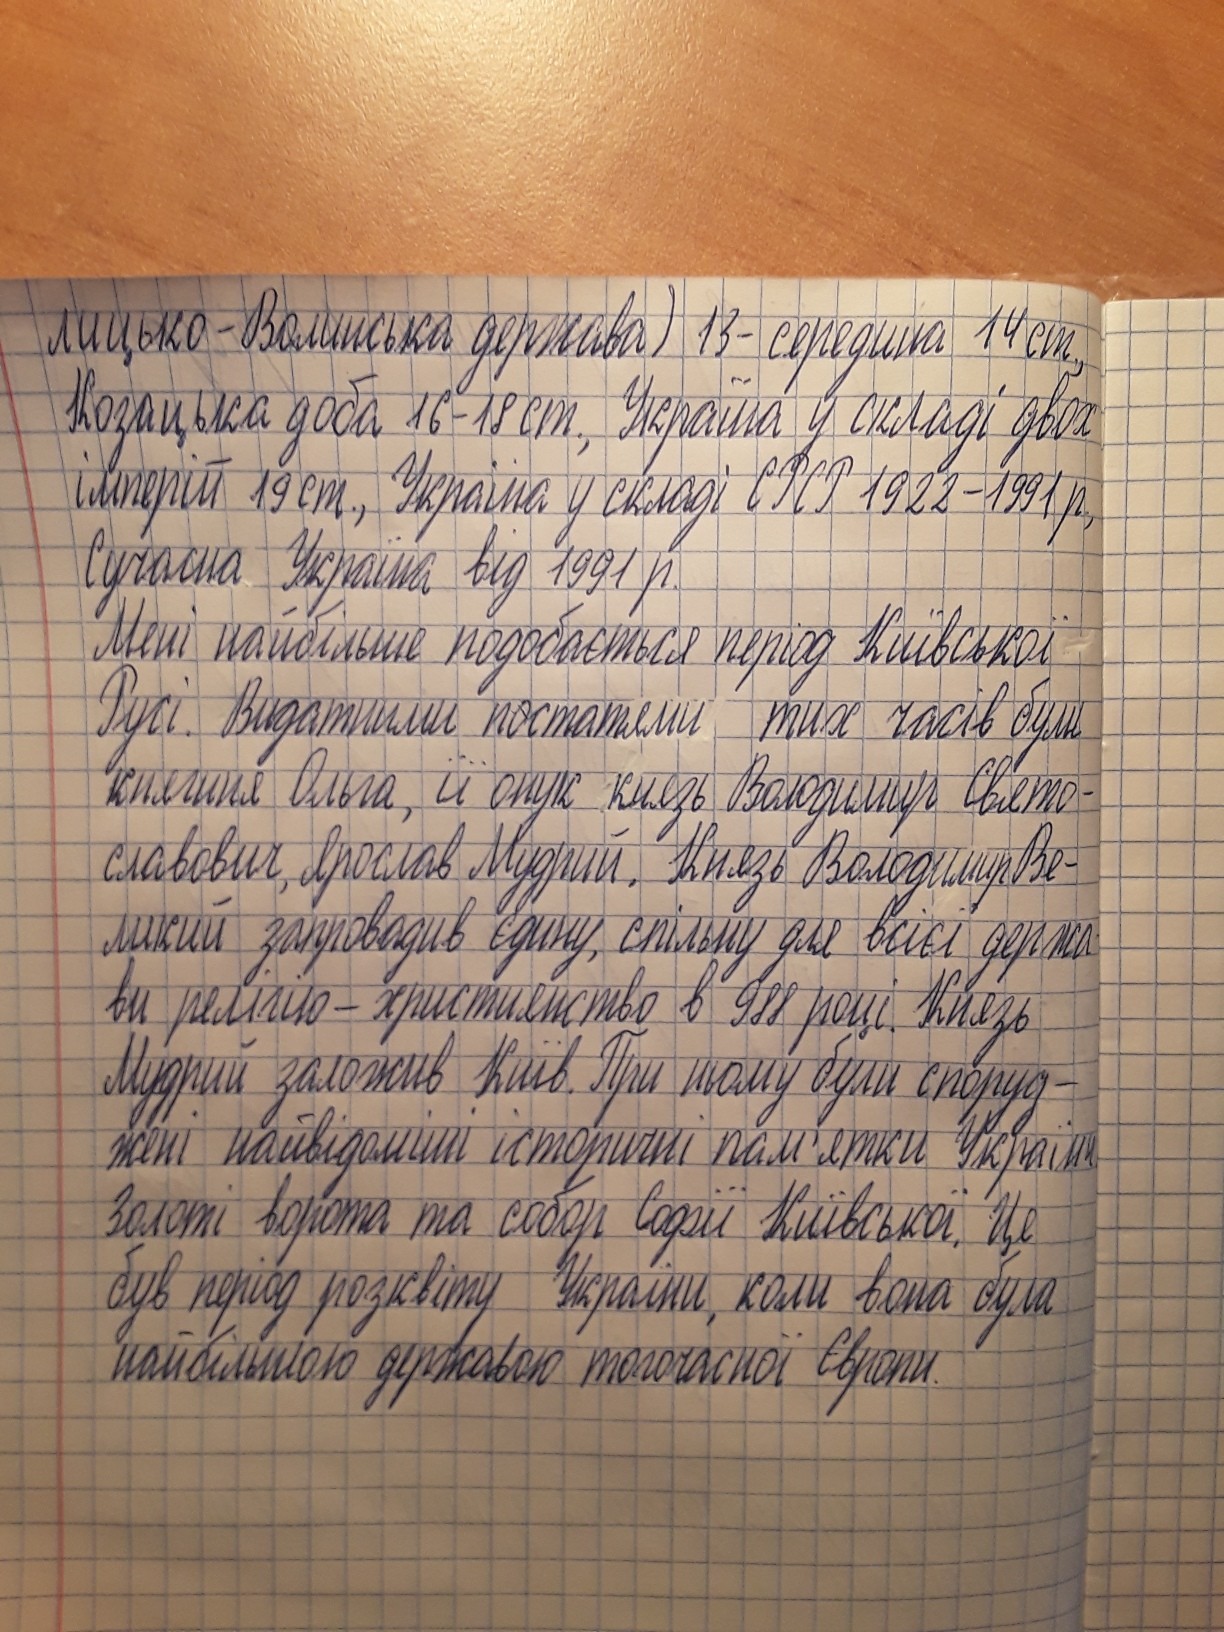 лицько-Волинська держава) 13- середина 14 ст.,
Козацька доба 16-18 ст., Україна у складі двох
імперій 19 ст., Україна у складі СРСР 1922-1991 р.,
Сучасна Україна від 1991 р.
Мені найбільше подобається період Київської
Русі. Видатними постатями тих часів були
княгиня Ольга, її онук князь Володимир Свято-
славович, Ярослав Мудрий. Князь Володимир Ве-
ликий запровадив єдину, спільну для всієї держа-
ви релігію - християнство в 988 році. Князь
Мудрий заложив Київ. При ньому були споруд-
жені найвідоміші історичні пам'ятки України
Золоті ворота та собор Софії Київської. Це
був період розквіту України, коли вона була
найбільшою державою тогочасної Європи.